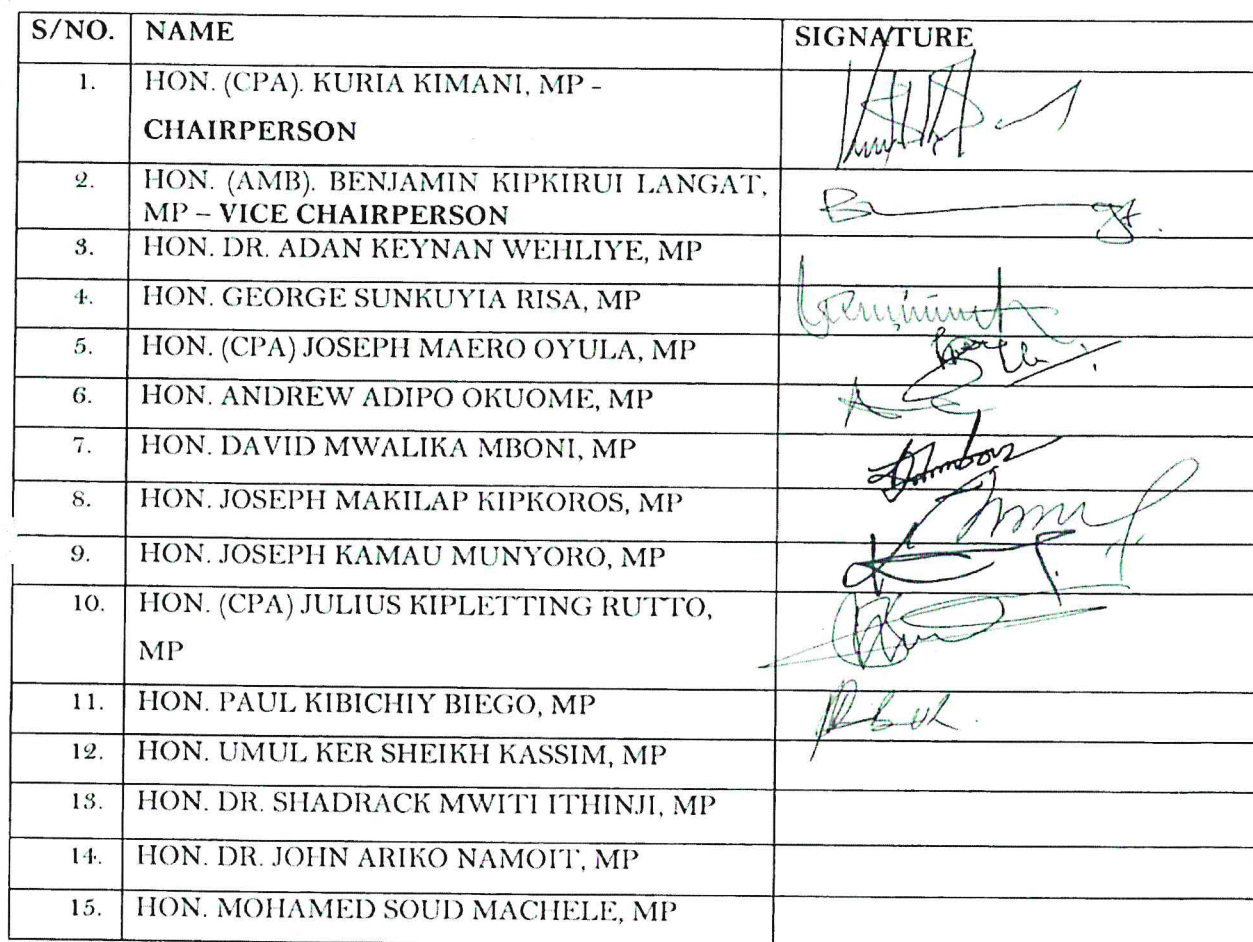 S/NO. NAME SIGNATURE
1. HON. (CPA). KURIA KIMANI, MP –
CHAIRPERSON
2. HON. (AMB). BENJAMIN KIPKIRUI LANGAT,
MP – VICE CHAIRPERSON
3. HON. DR. ADAN KEYNAN WEHLIYE, MP
4. HON. GEORGE SUNKUYIA RISA, MP
5. HON. (CPA) JOSEPH MAERO OYULA, MP
6. HON. ANDREW ADIPO OKUOME, MP
7. HON. DAVID MWALIKA MBONI, MP
8. HON. JOSEPH MAKILAP KIPKOROS, MP
9. HON. JOSEPH KAMAU MUNYORO, MP
10. HON. (CPA) JULIUS KIPLETTING RUTTO,
MP
11. HON. PAUL KIBICHIY BIEGO, MP
12. HON. UMUL KER SHEIKH KASSIM, MP
13. HON. DR. SHADRACK MWITI ITHINJI, MP
14. HON. DR. JOHN ARIKO NAMOIT, MP
15. HON. MOHAMED SOUD MACHELE, MP